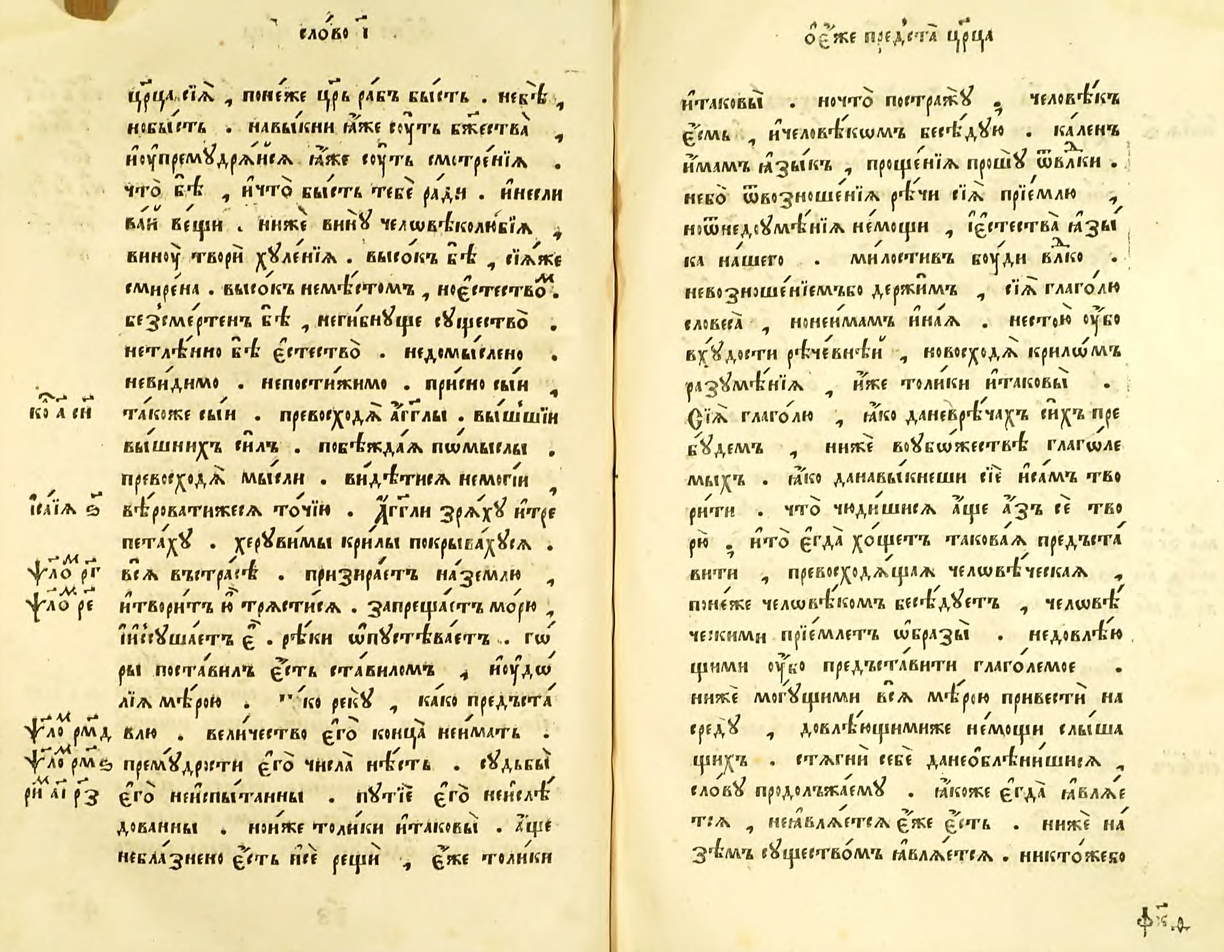 сло́во і҃
црⷭ҇ца сїѧ̀ , поне́же цр҃ь ра́бъ бы́сть . небѣ̀ ,
нобы́сть . навы́кни ꙗ҆́же сꙋ́ть бж҃ества̀ ,
и҆оу҆премꙋдрѧ́йсѧ ꙗ҆́же сꙋ́ть смотре́нїѧ .
что̀ бѣ̀ , и҆что̀ бы́сть тебѐ ра́ди . и҆несли
ва́й ве́щи . нижѐ винꙋ̀ чл҃овѣколю́бїѧ ,
винꙋ̀ твори̂ хꙋле́нїѧ . высо́къ бѣ̀ , сїѧ́же
смире́на . высо́къ немѣ́стомъ , ное҆стество́м .
безсме́ртенъ бѣ̀ , неги́бнꙋще сꙋщество̀ .
нетлѣ́нно бѣ̀ є҆стество̀ . недомы́слено .
неви́димо . непости́жимо . при́сно сы́и ,
ко҃ а҃ си
та́коже сы́и . превосходѧ̀ а҆́гг҃лы . вы́шшїи
вы́шнихъ си́лъ . побѣжда́ѧ по́мыслы .
превосходѧ̀ мы́сли . ви́дѣтисѧ немогі́и ,
і҆са́їѧ ѕ҃
вѣ́роватижесѧ то́чїю . А҆́гг҃ли зрѧ́хꙋ и҆тре
петахꙋ . херꙋви́мы кри́лы покрыва́хꙋсѧ .
ѱло́м рг҃
всѧ̀ въстра́сѣ . призира́етъ на́землю ,
ѱло́м ре҃
и҆твори́тъ ю҆̀ трѧсти́сѧ . запреща́етъ мо́рю ,
и҆и҆сꙋша́етъ є҆̀ . рѣ́ки ѡ҆пꙋстѣва́етъ . го
ры поста́вилъ є҆́сть ста́виломъ , и҆оу҆до
лїѧ мѣ́рою . ко рекꙋ̀ , ка́ко предъста́
ѱло́м рмд҃
влю . вели́чество є҆гѡ̀ конца̀ неи́мать .
ѱло́м рмѕ҃
премꙋ́дрости є҆го̀ числа̀ нѣ́сть . сꙋдьбы̀
ри́м аі҃ рз҃
є҆го̀ неи҆спы́танны . пꙋтїѐ є҆го̀ неи҆слѣ́
дованны . нои҆́же толи́ки и҆таковы̀ . а҆́ще
небла́знено є҆́сть и҆сѐ рещѝ , є҆́же толи́ки
ѻ҆є҆́же предста̀ црⷭ҇ца
и҆таковы̀ . ночто̀ постра́жꙋ , человѣ́къ
є҆́смь , и҆человѣ́кѡмъ бесѣ́дꙋю . ка́ленъ
и҆́мамъ ꙗ҆зы́къ , проще́нїѧ прошꙋ̀ ѿвлⷣки .
небо̀ ѿвозноше́нїѧ рѣ́чи сїѧ̀ прїе́млю ,
ноѿнедоꙋмѣ́нїѧ не́мощи , і҆є҆стества̀ ꙗ҆зы̀
ка на́шего . ми́лостивъ бꙋ́ди влⷣко .
невозноше́нїемъбо держи́мъ , сїѧ̀ глаго́лю
словеса̀ , нонеи́мамъ и҆на́ѧ . несто́ю оу҆́бо
вхꙋ́дости рѣче́внѣй , новосходѧ̀ крило́мъ
разꙋмѣ́нїѧ , и҆́же толи́ки и҆таковы̀ .
Сїѧ̀ глаго́лю , ꙗ҆́ко даневрѣ́чахъ си́хъ пре
бꙋ́демъ , нижѐ воꙋбо́жествѣ глаго́ле
мыхъ . ꙗ҆́ко данавы́кнеши сїѐ и҆са́мъ тво
ри́ти . что̀ чюди́шисѧ а҆́ще а҆́зъ сѐ тво
рю̀ , и҆то̀ є҆гда̀ хо́щетъ такова́ѧ предъста́
вити , превосходѧ́щаѧ человѣ́ческаѧ ,
поне́же человѣ́комъ бесѣ́дꙋетъ , человѣ́
ческими прїе́млетъ ѡ҆́бразы . недовлѣ́ю
щими оу҆́бо предъста́вити глаго́лемое .
нижѐ могꙋ́щими всѧ̀ мѣ́рою привестѝ на
средꙋ̀ , довлѣ́ющимиже не́мощи слы́ша
щихъ . стѧгнѝ себѐ данеѡблѣни́шисѧ ,
сло́вꙋ продолъжа́емꙋ . ꙗ҆́коже є҆гда̀ ꙗ҆влѧ́е
тсѧ , неꙗ҆влѧ́етсѧ є҆́же є҆́сть . нижѐ на
зѣ́мъ сꙋщество́мъ ꙗ҆влѧ́етсѧ . никто́жебо